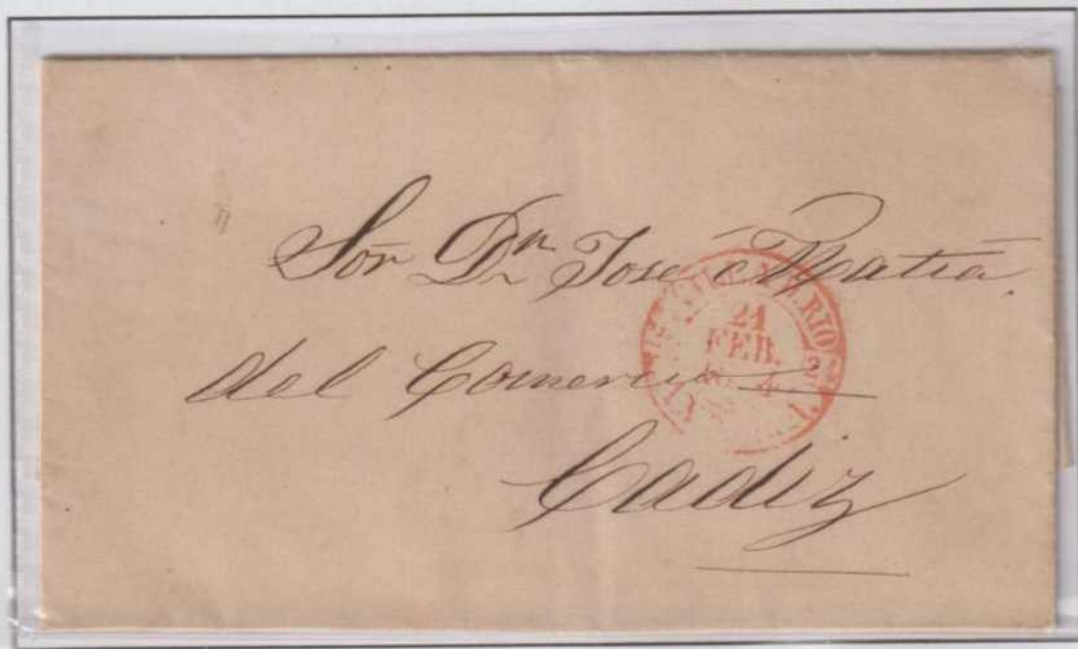 Sor Dn José Matia
del Comercio
Cadiz
24
FEB.